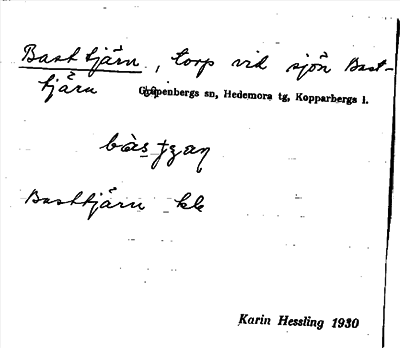 Basttjärn, torp vid sjön Bast-
tjärn
Garpenbergs sn, Hedemora tg, Kopparbergs l.
Basttjärn
Karin Hessling 1930